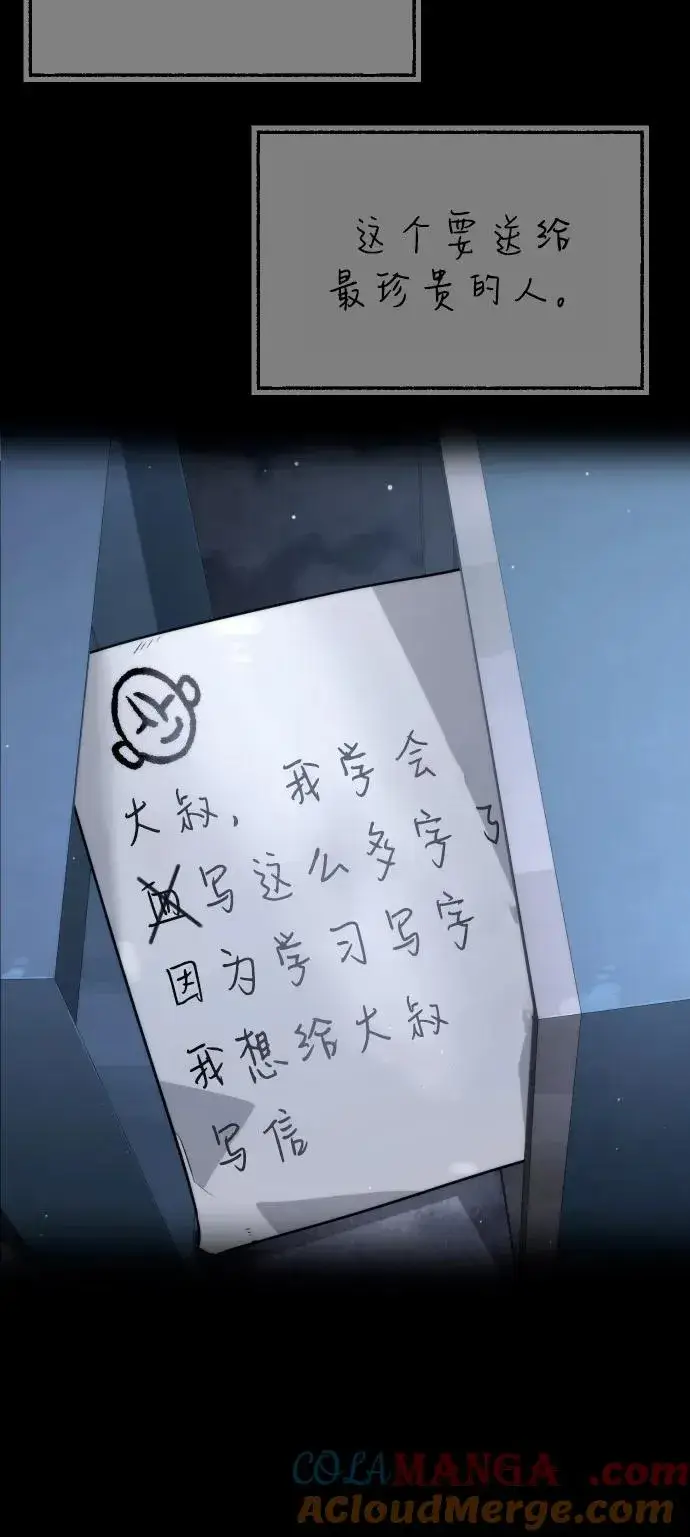 这个要送给
最珍贵的人。
大叔，我学会
写这么多字了
因为学习写字
我想给大叔
写信
COLAMANGA.com
ACloudMerge.com